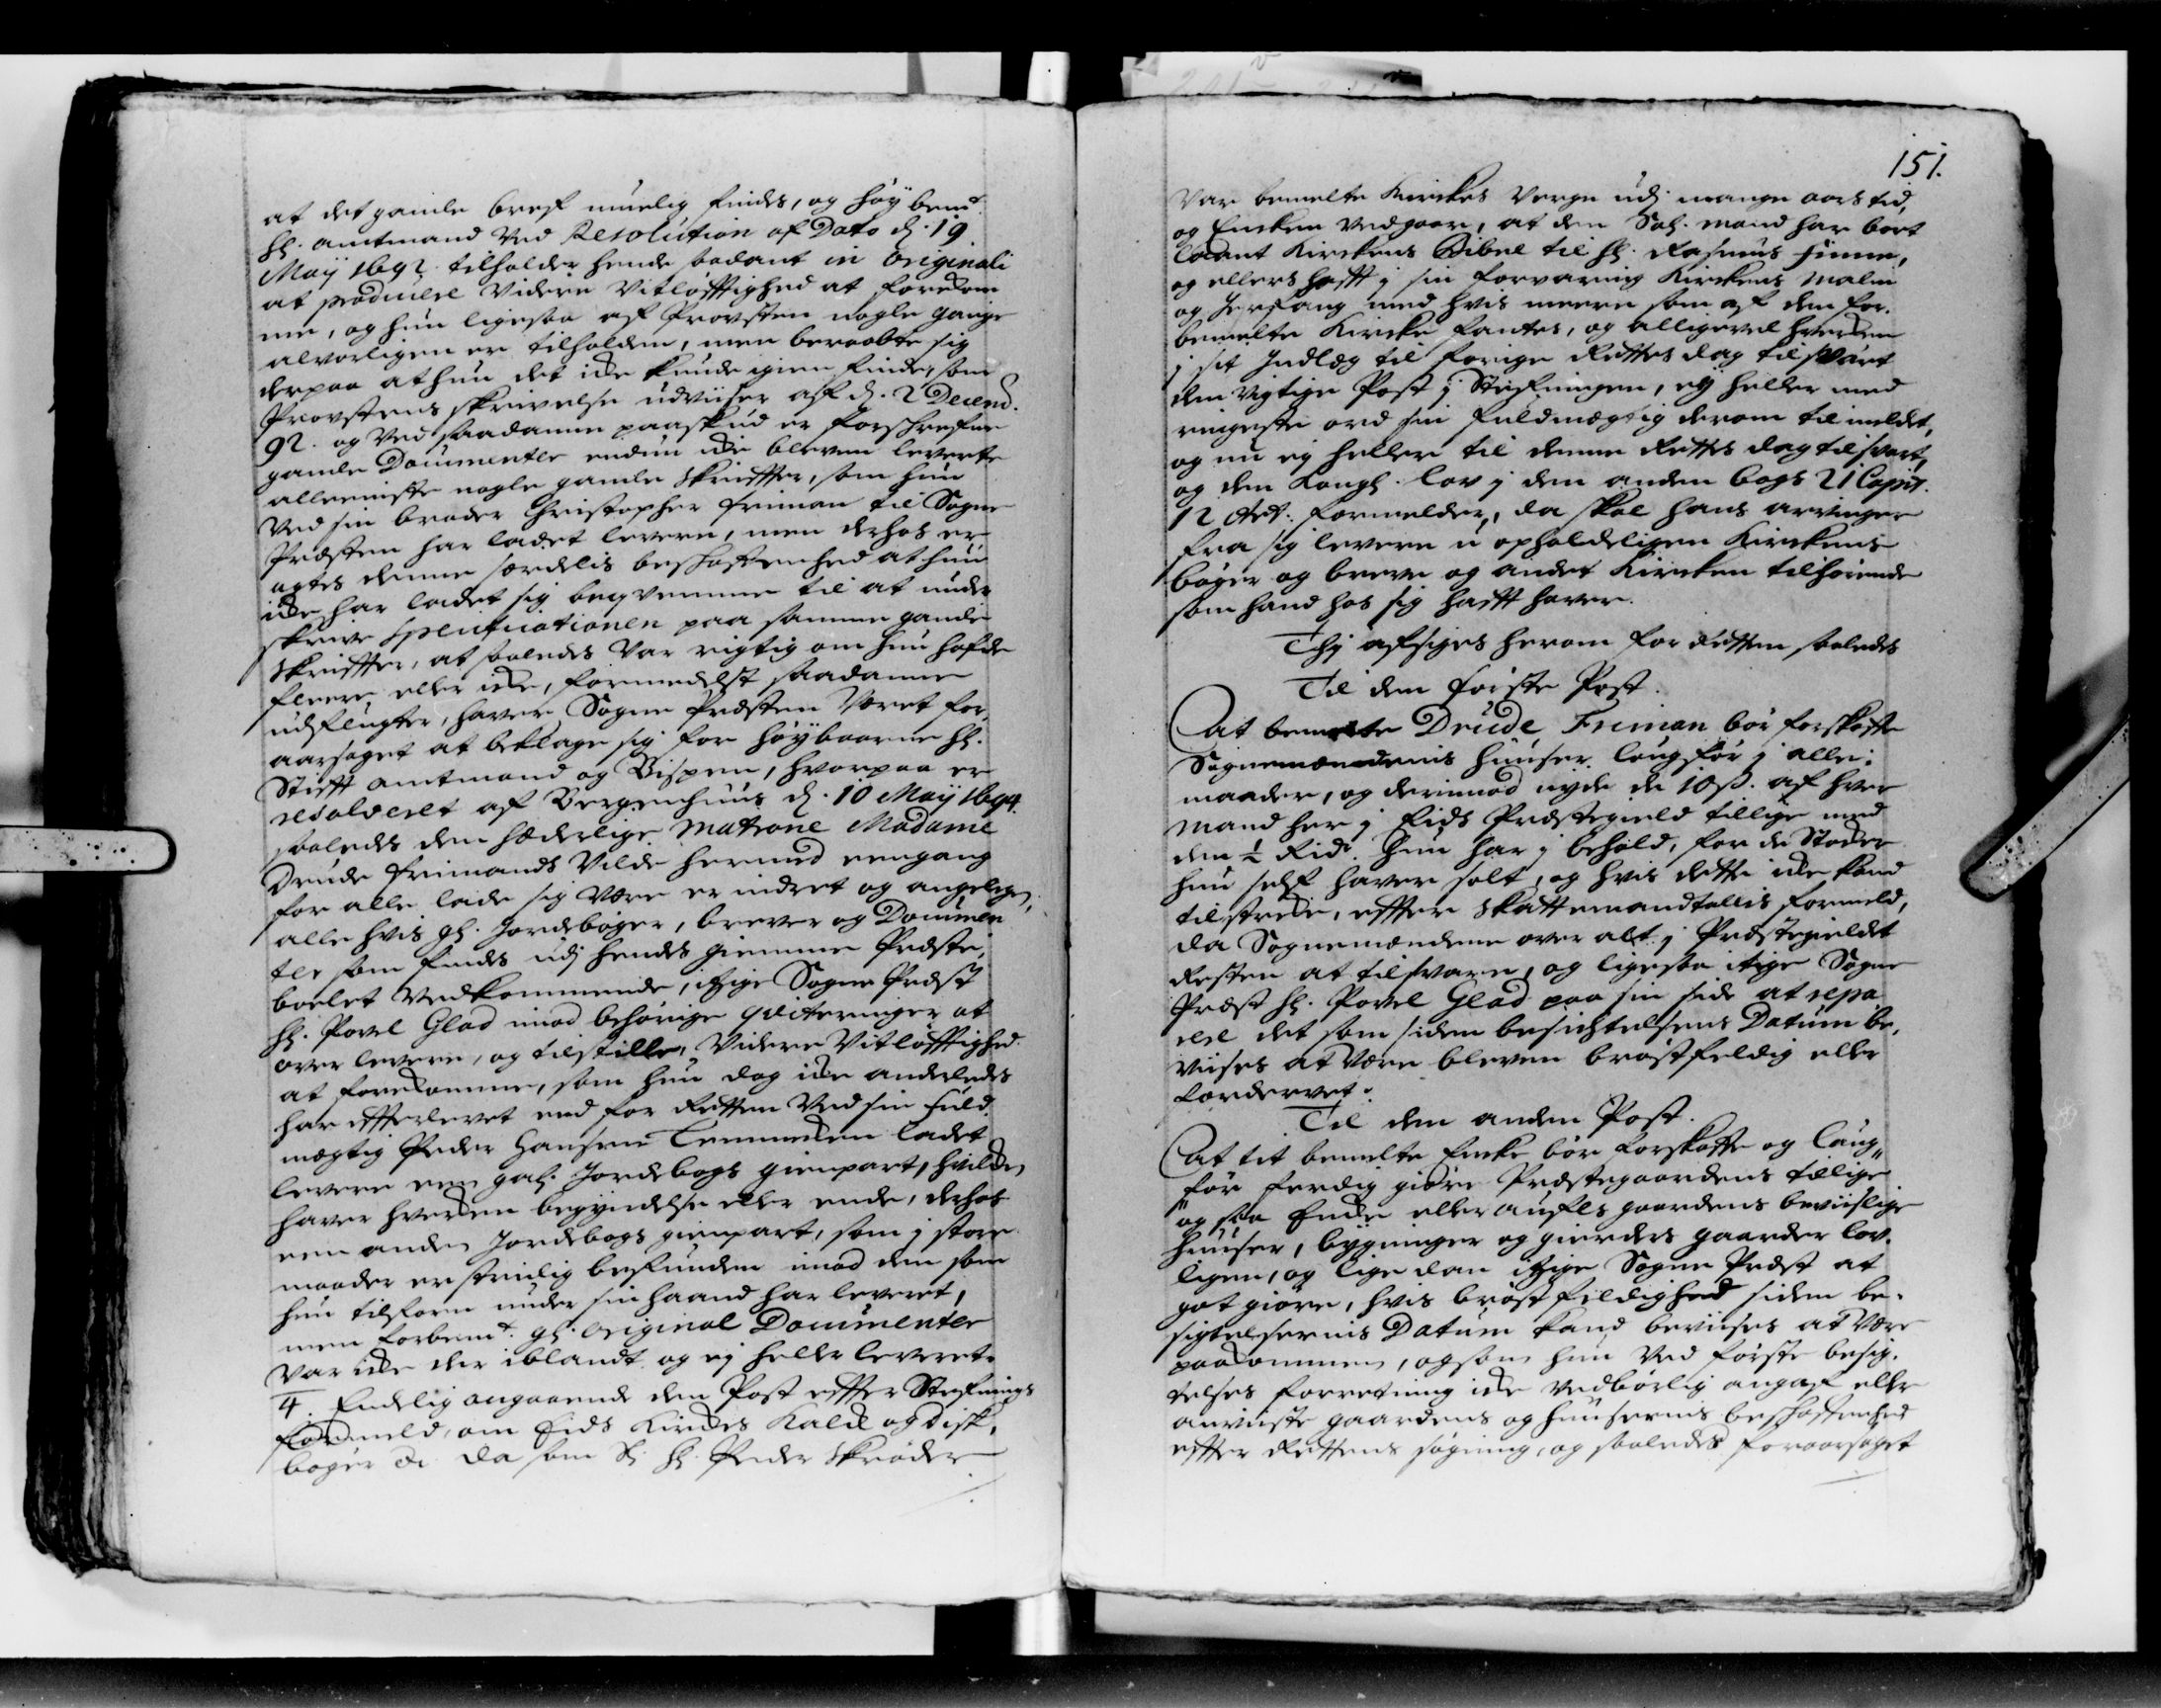 at det gamle breff muelig findes, og høy bemt.
Hr. amtmand Ved Resolution af Dato d. 19
Maÿ 1692 tilholder hende saadant in Originali
at producere Videre Vitløfftighed at forekom
me, og hun ligesaa aff Provsten nogle gange
alvorligen er tilholden, men beraabte sig
derpaa at hun det icke kunde igien finde, som
Provstens skrivelse udviiser aff d. 2 Decemb.
92. og Ved saadanne paaskud er forschrefne
gamle Documenter endnu icke bleven leverte
alleeniste nogle gamle skriffter, som hun
Ved sin broder Christopher friman til Sogne
Præsten har ladet levere, men derhos er
agtes denne særdelis beskaffenhed at hun
icke har ladet sig beqvemme til at under
skrive Specificationen paa samme gamle
skriffter, at saaledes Var rigtig om hun hafde
fleere eller icke, formedelst saadanne
udflugter, haver Sogne Præsten Været for
aarsaget at beklage sig for høybaarne Hr.
Stifft amtmand og Bispen, hvorpaa er
resolveret aff Bergenhuus d. 10 Maÿ 1694.
saaledes den hæderlige Matrone Madame
Drude frimands Vilde hermed eengang
for alle lade sig Være er indret og angelegen,
alle hvis gl. Jordebøger, brever og Documen
ter som findes udj hendes giemme Præste,
boelet Vedkommende, itzige Sogne Præst
Hr. Povel Glad imod behørige qviteringer at
over levere, og tilstille, Videre Vitløfftighed
at forekomme, som hun dog icke anderledes
har efterlevet end for Retten Ved sin fuld
mægtig Peder Hansøn Lemmeken ladet
levere een gal. Jordebogs gienpart, hvilcke
haver hvercken begyndelse eller ende, derhos
een anden Jordebogs gienpart, som j store
maader er stridig befunden imod den som
hun tilforn under sin haand har leveret,
men forbemt. gl. original Documenter
Var icke der iblandt og ej heller leveret.
4. Endelig angaaende den Post effter Steffnings
formeld, om Eids Kirckes Kalck og Disk,
bøger &c da som Sl. Hr. Peder Skrøder
151.
Var bemelte Kirckes Verge udj mange aars tid,
og Encken Vedgaar, at den Sal. Mand har bort
laant Kirckens Bibel til Hr. Rasmus finne,
og ellers hafft j sin forvaring Kirckens Malm
og Jernfang med hvis meere som aff den for,
bemelte Kircke fantes, og alligevel hvercken
j sit Indlæg til forige Rettes dag tilsvart
den Vigtige Post j Steffningen, ej heller med
ringeste ord sin fuldmægtig derom til meldet,
og nu ej heller til denne Rettes dag tilsvart,
og den Kongl. lov j den anden bogs 21 Capit.
12 Art. formelder, da skal hans arvinger
fra sig levere u opholdeligen Kirckens
bøger og breve og andet Kircken tilhørende
som hand hos sig hafft haver.
Thj affsiges herom for Retten saaledes
Til den første Post.
At bemelte Drude Friman bør forskaffe
Sognemændenis huuser laugfør j alle
maader, og derimod nyde de 10 ß. af hver
Mand her j Eids Præstegield tillige med
den ½ Rdr. hun har j behold, for de Stocker
hun self haver solt, og hvis dette icke kand
tilstrecke, effter skattemandtallis formeld,
da Sognemændene over alt j Præstegieldet
Resten at tilsvare, og ligesaa itzige Sogne
Præst Hr. Povel Glad paa sin side at repa
rere det som siden besichtelsens Datum be,
viises at Være bleven brøstfeldig eller
fordervet.
Til den anden Post.
At tit bemelte Encke bør forskaffe og laug„
før ferdig giøre Præstegaardens tillige
og saa Encke eller aufls gaardens beviislige
huuser, bygninger og gierders gaarder lov,
ligen, og lige dan itzige Sogne Præst at
got giøre, hvis brøstfeldighed siden be,
sigtelsernis Datum kand beviises at Være
paakommen, og som hun Ved første besig,
telses forretning icke Vedbørlig angaf eller
anviiste gaardens og huusernis beskaffenhed
effter Rettens søgning, og saaledes foraarsaget